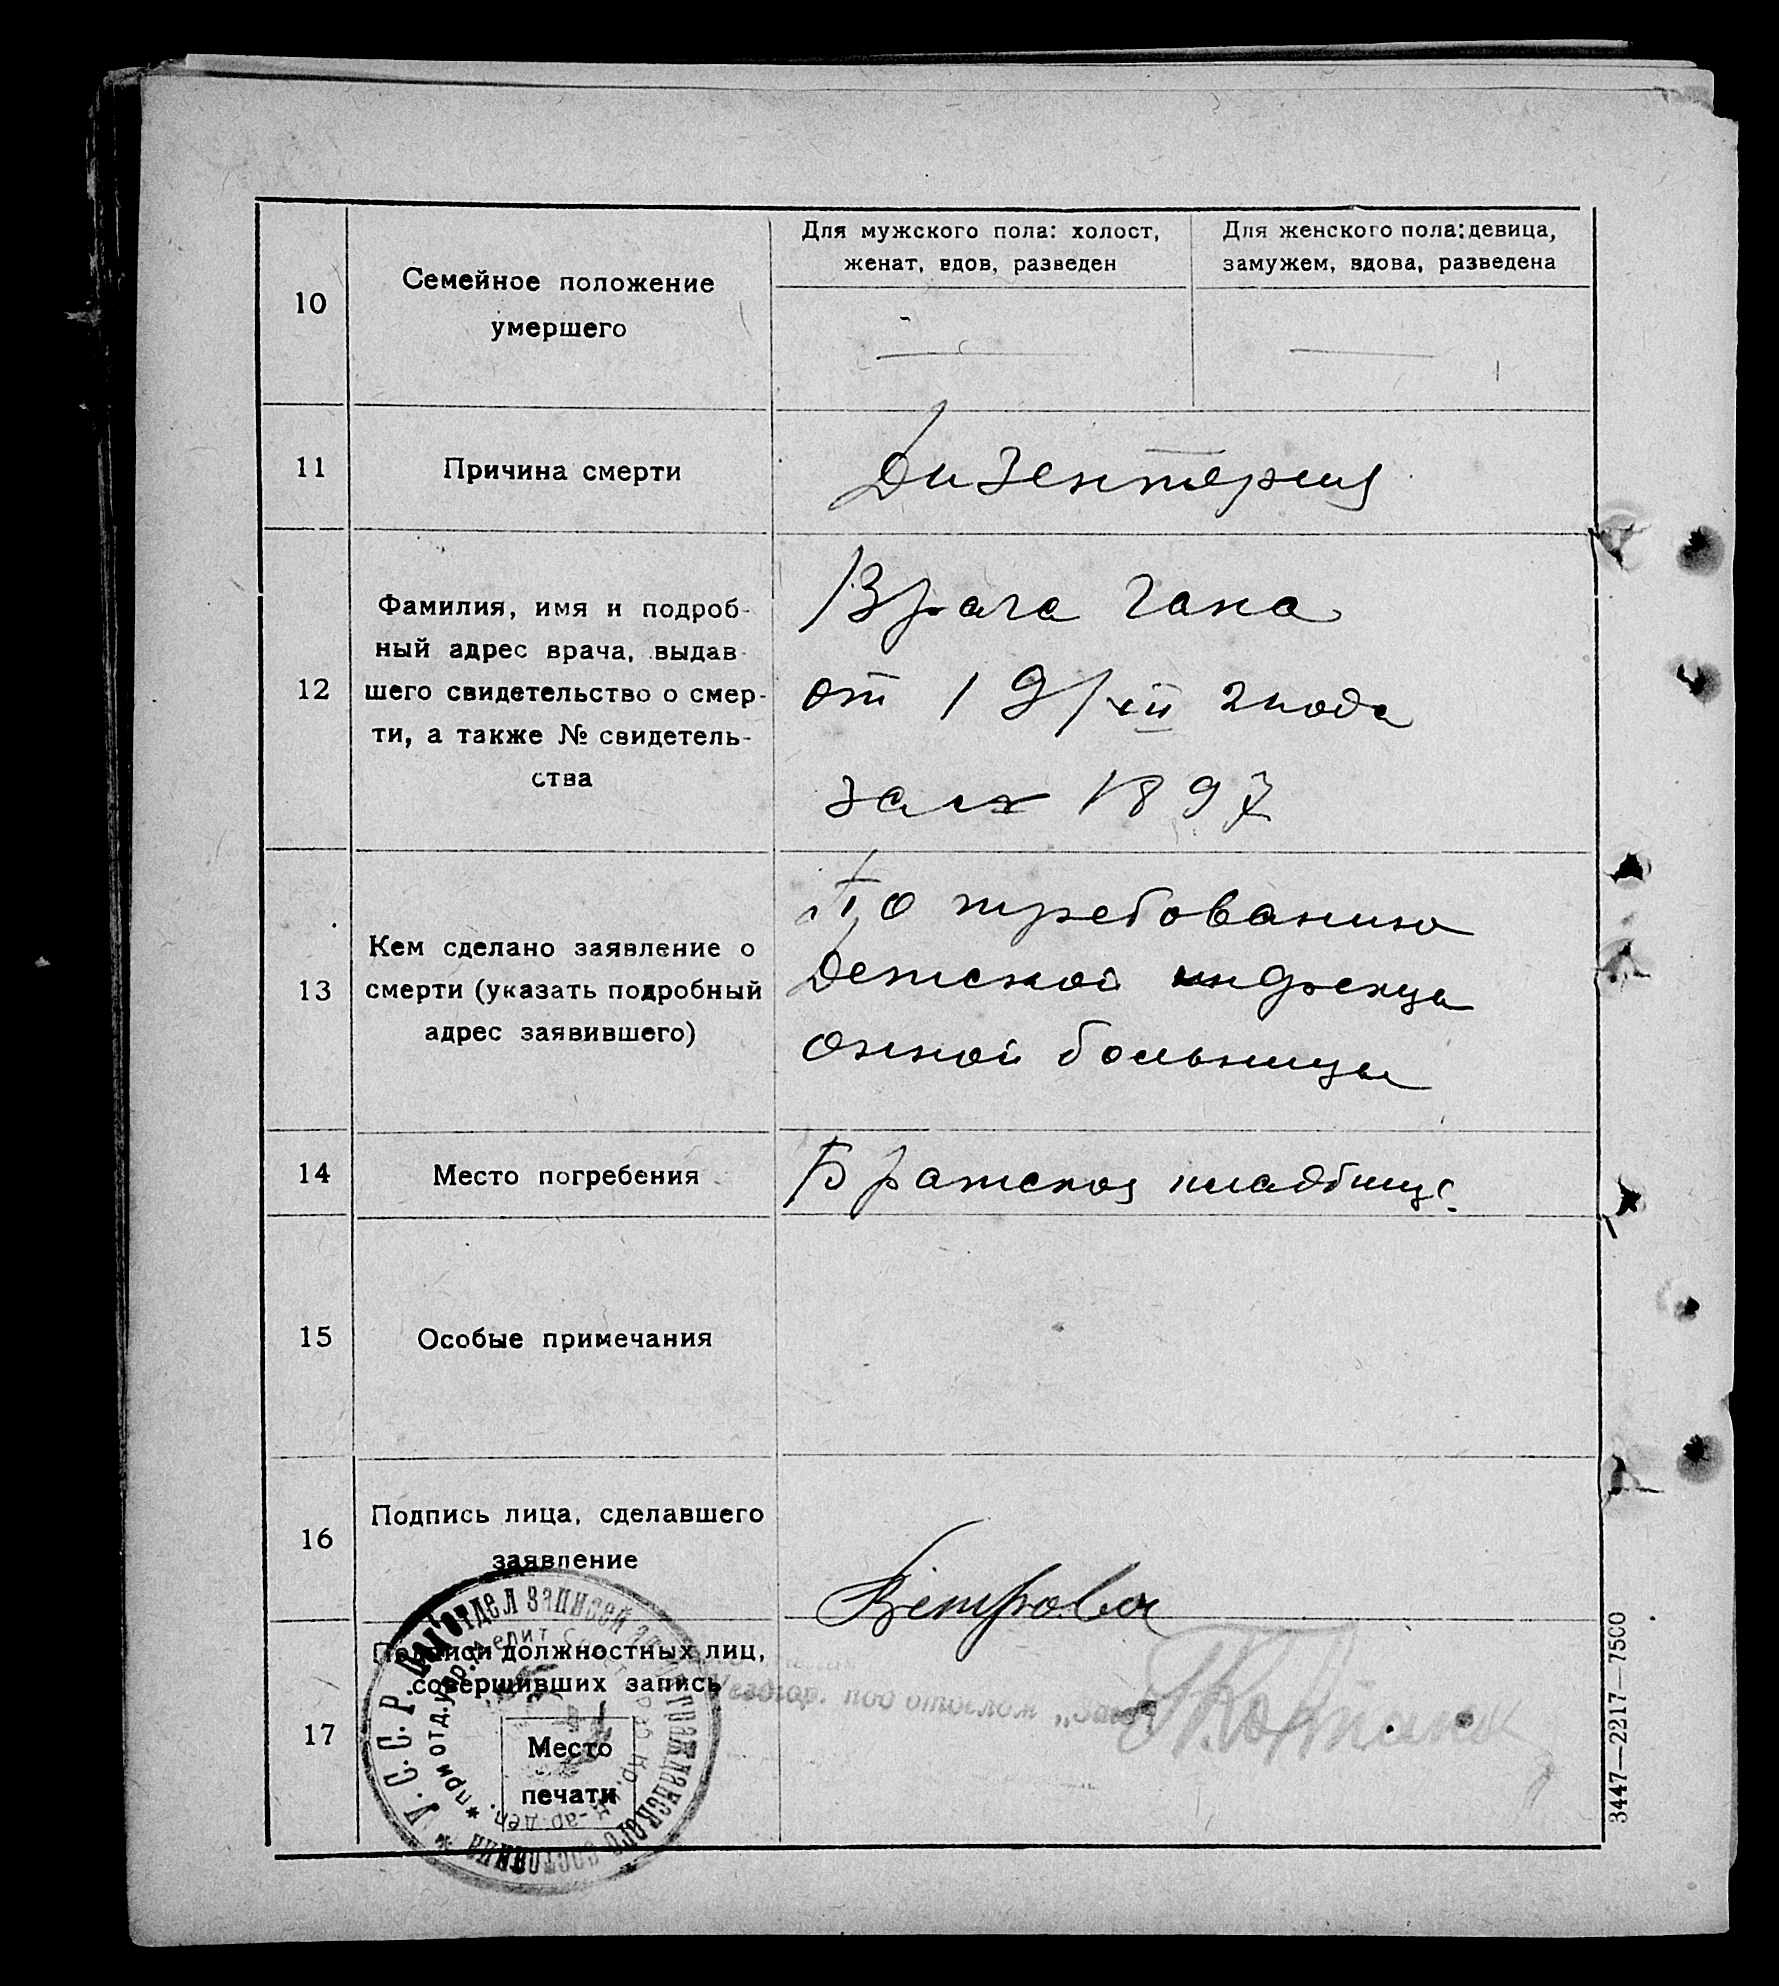 10
Семейное положение
умершего
Для мужского пола: холост,
женат, вдов, разведен
Для женского пола: девица,
замужем, вдова, разведена
11
Причина смерти
Дизентерия
12
Фамилия, имя и подроб-
ный адрес врача, выдав-
шего свидетельство о смер-
ти, а также № свидетель-
ства
Врача Гана
от 19/XII 2 года
за № 1897
13
Кем сделано заявление о
смерти (указать подробный
адрес заявившего)
По требованию
Детской инфекци
онной больницы
14
Место погребения
Братское кладбище
15
Особые примечания
16
Подпись лица, сделавшего
заявление
Ветрова
17
Подписи должностных лиц,
совершивших запись
Место
печати
У.С.С.Р. отдел записей гражданского состояния
при отд. упр.
под отделом „Загс"
3447—2217—7500